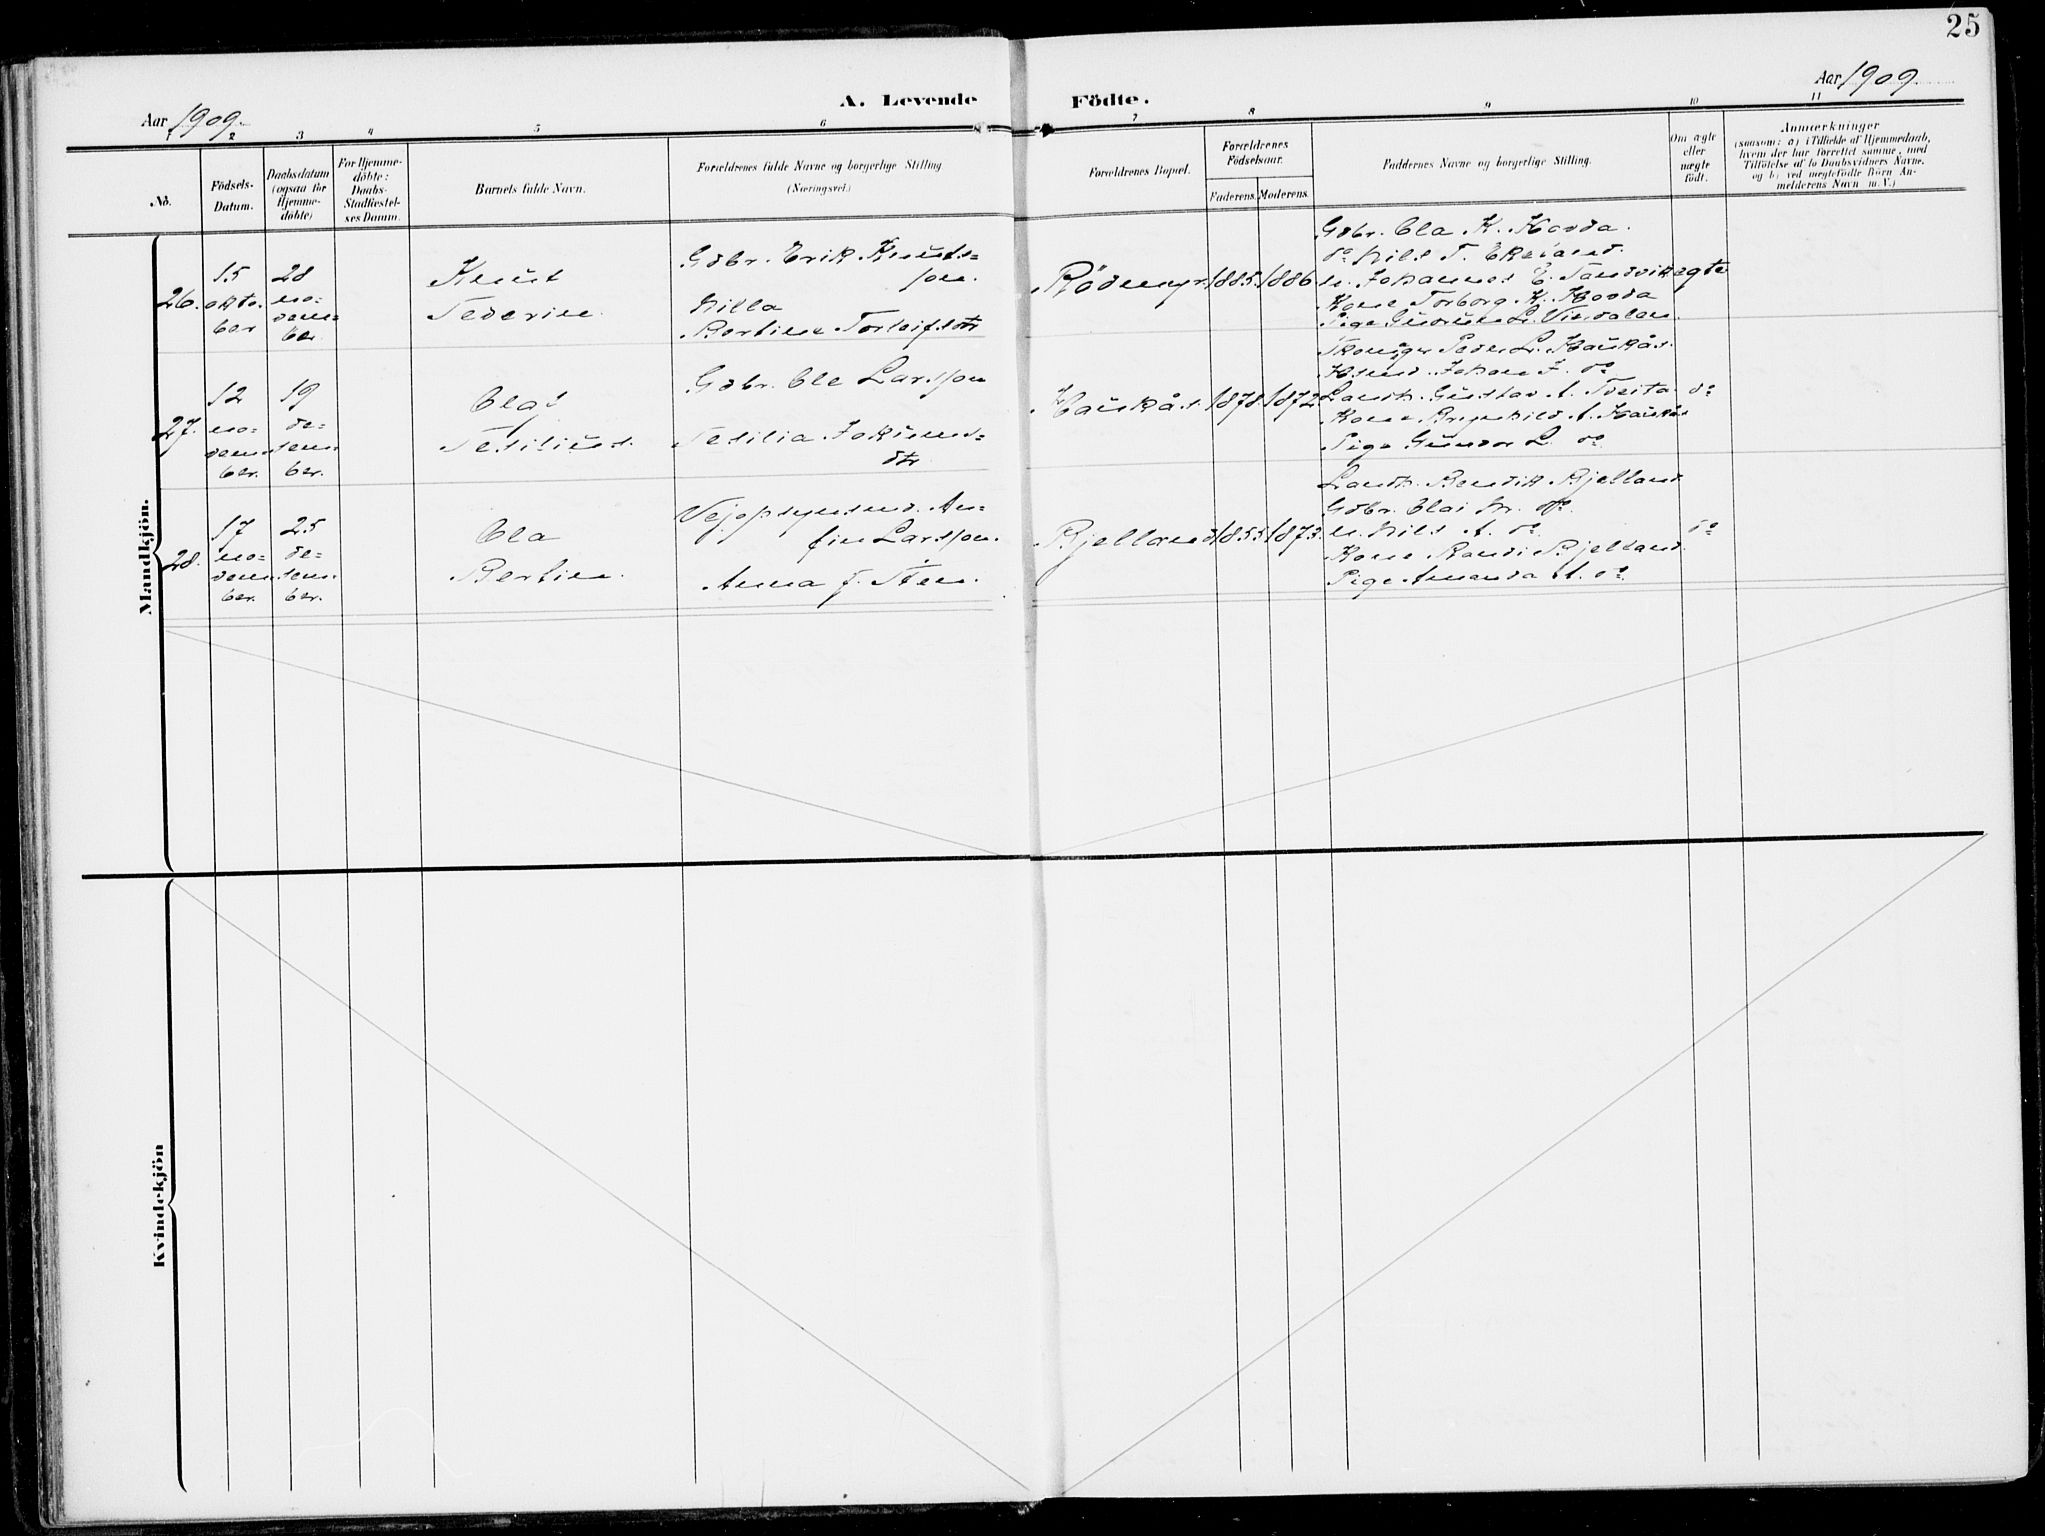 25
Aar 1909.
A. Levende
Födte.
Aar 1909
1 2 3 4 5 6 7 8 9 10 11
No.
Födsels-
Datum.
Daabsdatum
(ogsaa for
Hjemme-
döbte)
For Hjemme-
döbte:
Daabs-
Stadfæstel-
ses Datum.
Barnets fulde Navn.
Forældrenes fulde Navne og borgerlige Stilling
(Næringsvei.)
Forældrenes Bopæl.
Forældrenes
Födselsaar.
Faderens. Moderens.
Faddernes Navne og borgerlige Stilling.
Om ægte
eller
uægte
födt.
Anmærkninger
(saasom: a) i Tilfælde af Hjemmedaab,
hvem der har forrettet samme, med
Tilföielse af to Daabsvidners Navne.
og b) ved uægtefödte Börn An-
melderens Navn m. V.)
Mandkjön.
26.
15
okto-
ber
28
no-
vem-
ber
Knut
Severin
Gdbr. Erik Knuts-
son.
Milla
Bertine Torleifsdtr
Rödmyr 1885. 1886.
Gdbr. Ola K. Hovda.
do Nils T. Ekeland.
u. Johannes E. Tandvik
Kone Torborg K. Hovda
Pige Gudrun L. Vindalen.
ægte
27.
12
no-
vem-
ber.
19
de-
sem-
ber.
Olaf
Gdbr. Ole Larsson
Jokums-
dtr.
Haukås. 1878. 1872.
Peder L. Haukås.
Johan J. do
Landh. Gustav A. Tveita
Kone Brynhild A. Haukås
Pige Gundor L. do
do
28.
17
no-
vem-
ber.
25
de-
sem-
ber.
Ola
Bertin.
Vejopsynsmd. An-
fin Larsson.
Anna J. Steen.
Bjelland 1855. 1873.
Landh. Bendik Bjelland
Gdbr. Olai do.
u. Nils A. do
Kone Randi Bjelland.
Pige Amanda A. do
do
Kvindekjön